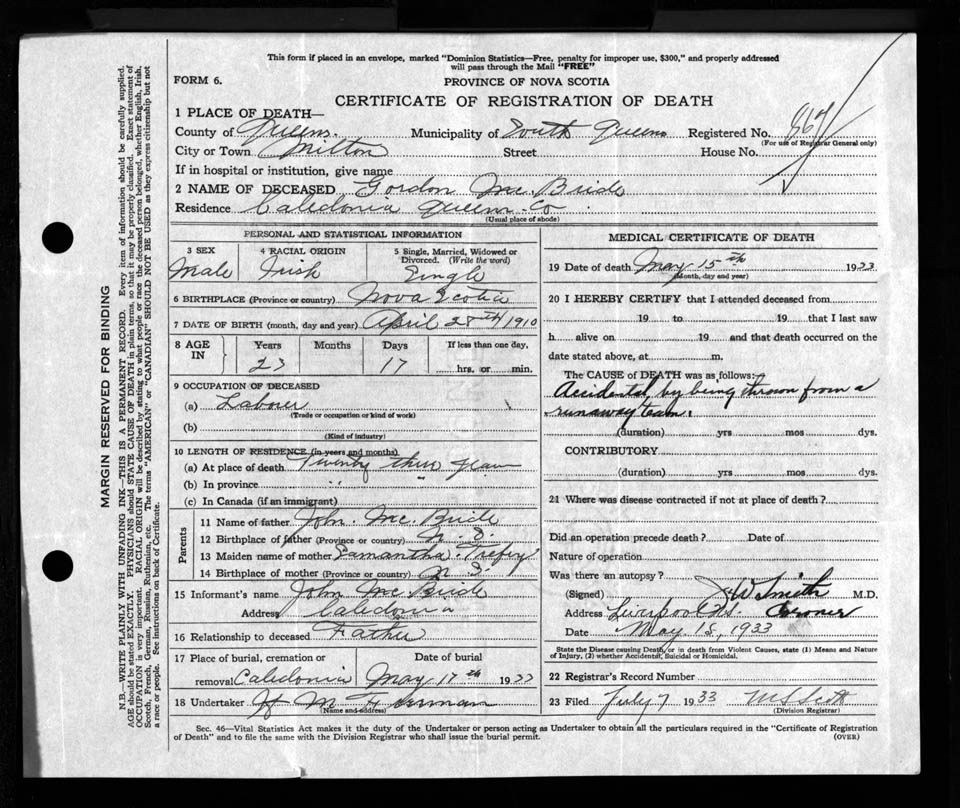 This form if placed in an envelope, marked "Dominion Statistics—Free, penalty for improper use, $300," and properly addressed
will pass through the Mail "FREE"
FORM 6.
PROVINCE OF NOVA SCOTIA
CERTIFICATE OF REGISTRATION OF DEATH
1 PLACE OF DEATH—
County of Queens. Municipality of South Queens Registered No.
(For use of Registrar General only)
City or Town Milton Street House No.
If in hospital or institution, give name
2 NAME OF DECEASED Gordon Mc Bride
Residence Caledonia Queens Co
(Usual place of abode)
PERSONAL AND STATISTICAL INFORMATION
3 SEX 4 RACIAL ORIGIN 5 Single, Married, Widowed or
Divorced. (Write the word)
Male Irish Single
6 BIRTHPLACE (Province or country) Nova Scotia
7 DATE OF BIRTH (month, day and year) April 28th 1910
8 AGE IN Years Months Days If less than one day,
23 17 hrs. or min.
9 OCCUPATION OF DECEASED
(a) Laborer
(Trade or occupation or kind of work)
(b)
(Kind of industry)
10 LENGTH OF RESIDENCE (in years and months)
(a) At place of death Twenty three years
(b) In province " "
(c) In Canada (if an immigrant)
Parents
11 Name of father John. Mc Bride
12 Birthplace of father (Province or country) N. S.
13 Maiden name of mother Samantha. Trefry
14 Birthplace of mother (Province or country) N. S.
15 Informant's name John Mc Bride
Address Caledonia
16 Relationship to deceased Father
17 Place of burial, cremation or Date of burial
removal Caledonia May 17th 1933
18 Undertaker H M
(Name and address)
MEDICAL CERTIFICATE OF DEATH
19 Date of death May 15th 1933
(Month, day and year)
20 I HEREBY CERTIFY that I attended deceased from
19 to 19 that I last saw
h alive on 19 and that death occurred on the
date stated above, at m.
The CAUSE of DEATH was as follows:
Accidental, by being thrown from a
runaway team.
(duration) yrs mos dys.
CONTRIBUTORY
(duration) yrs mos dys.
21 Where was disease contracted if not at place of death?
Did an operation precede death? Date of
Nature of operation
Was there an autopsy?
(Signed) J W Smith M.D.
Address Liverpool N.S. Coroner
Date May 15, 1933
State the Disease causing Death, or in death from Violent Causes, state (1) Means and Nature
of Injury, (2) whether Accidental, Suicidal or Homicidal.
22 Registrar's Record Number
23 Filed July 7 1933
(Division Registrar)
Sec. 46—Vital Statistics Act makes it the duty of the Undertaker or person acting as Undertaker to obtain all the particulars required in the "Certificate of Registration
of Death" and to file the same with the Division Registrar who shall issue the burial permit.
(OVER)
MARGIN RESERVED FOR BINDING
N.B.—WRITE PLAINLY WITH UNFADING INK—THIS IS A PERMANENT RECORD. Every item of information should be carefully supplied.
AGE should be stated EXACTLY. PHYSICIANS should STATE CAUSE OF DEATH in plain terms, so that it may be properly classified. Exact statement of
OCCUPATION is very important. RACIAL ORIGIN will be described by stating to what people or race the deceased person belonged, whether English, Irish,
Scotch, French, German, Russian, Ruthenian, etc. The terms "AMERICAN" or "CANADIAN" SHOULD NOT BE USED as they express citizenship but not
a race or people. See instructions on back of Certificate.